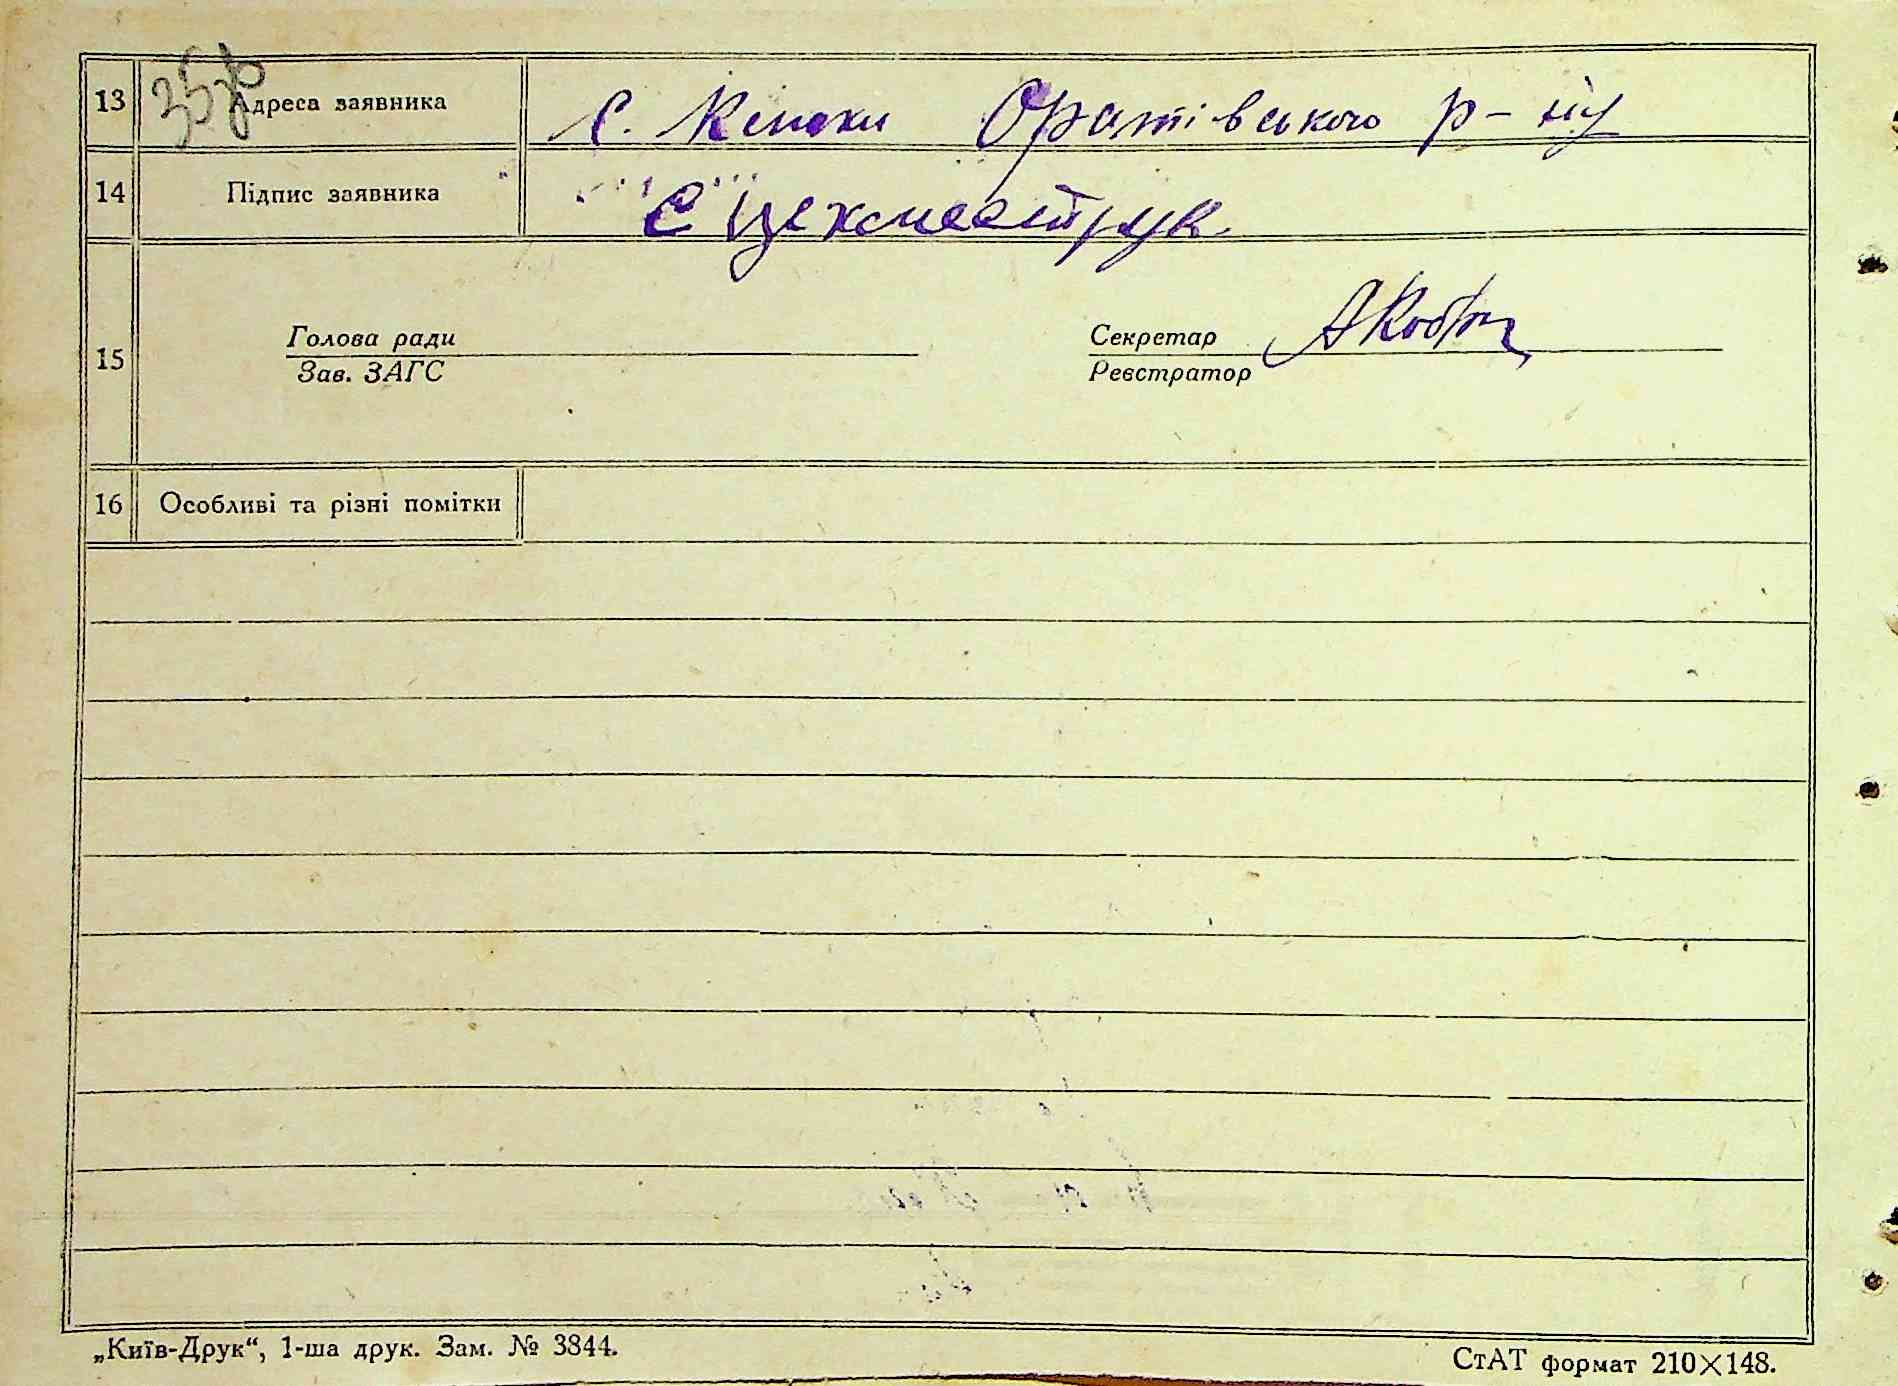 35
13 Адреса заявника с. Кошоки Оратівського р-ну
14 Підпис заявника Є Цехместрук
15 Голова ради Секретар
Зав. ЗАГС Реєстратор
16 Особливі та різні помітки
„Київ-Друк“, 1-ша друк. Зам. № 3844.
СтАТ формат 210×148.